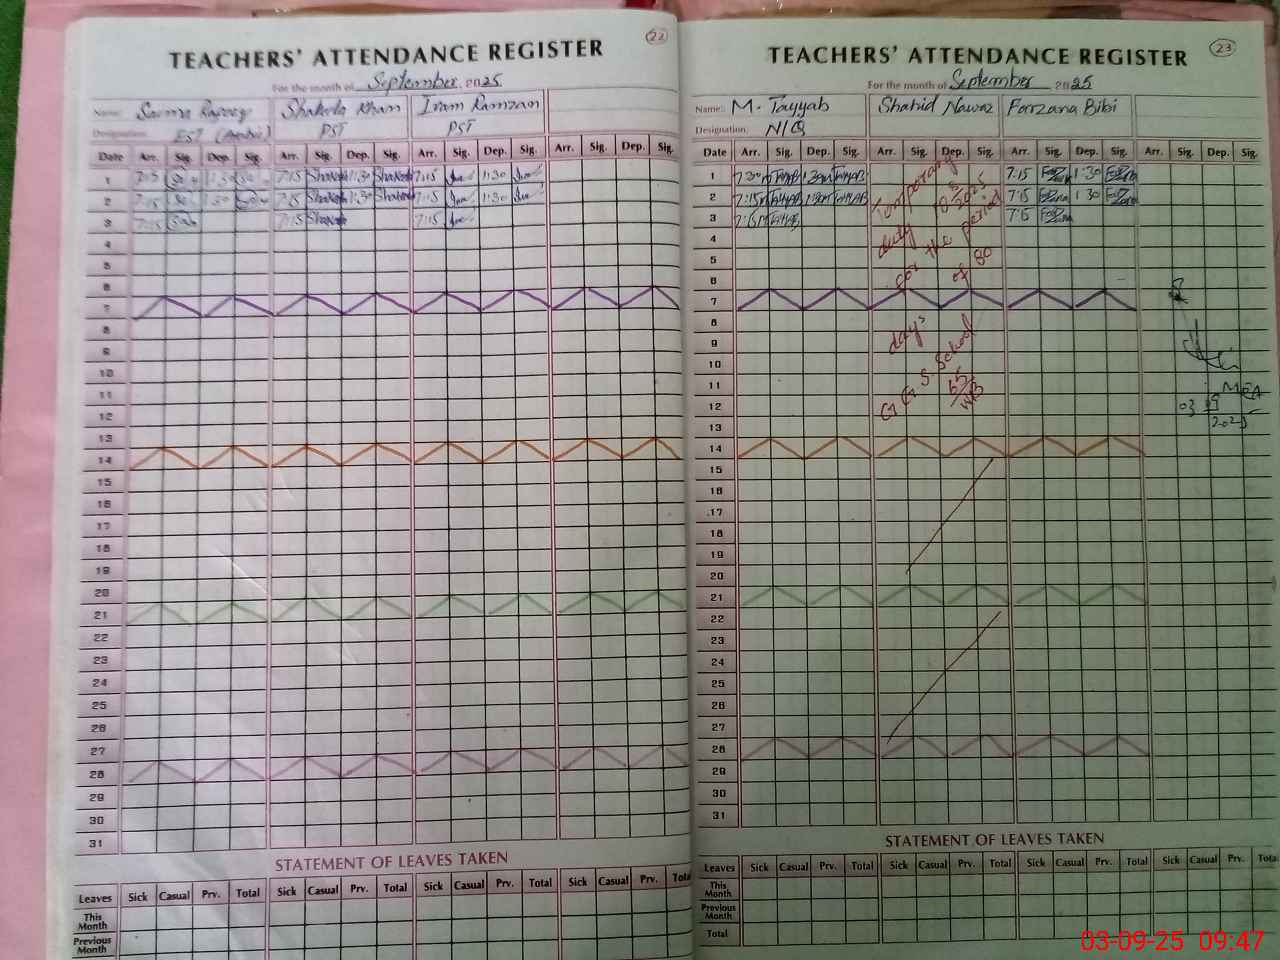 22
TEACHERS' ATTENDANCE REGISTER
For the month of September 2025
Name: Shakeela Khan Iram Ramzan
Designation: EST (Arabic) PST PST
Date Arr. Sig. Dep. Sig. Arr. Sig. Dep. Sig. Arr. Sig. Dep. Sig. Arr. Sig. Dep. Sig.
1 7:15 1:30 7:15 Shakeela 1:30 Shakeela 7:15 1:30
2 7:15 1:30 7:15 Shakeela 1:30 Shakeela 7:15 1:30
3 7:15 7:15 Shakeela 7:15
4
5
6
7
8
9
10
11
12
13
14
15
16
17
18
19
20
21
22
23
24
25
26
27
28
29
30
31
STATEMENT OF LEAVES TAKEN
Leaves Sick Casual Prv. Total Sick Casual Prv. Total Sick Casual Prv. Total Sick Casual Prv. Total
This Month
Previous Month
23
TEACHERS' ATTENDANCE REGISTER
For the month of September 2025
Name: M. Tayyab Shahid Nawaz Farzana Bibi
Designation: N/Q
Date Arr. Sig. Dep. Sig. Arr. Sig. Dep. Sig. Arr. Sig. Dep. Sig. Arr. Sig. Dep. Sig.
1 7:30 Tayyab 1:30 Tayyab 7:15 Farzana 1:30 Farzana
2 7:15 Tayyab 1:30 Tayyab 7:15 Farzana 1:30 Farzana
3 7:15 Tayyab 7:15 Farzana
4
5
6
7
8
9
10
11
12
13
14
15
16
17
18
19
20
21
22
23
24
25
26
27
28
29
30
31
Temporary
duty
for the period
of 80
days
G G S. School
65/WB
MEA
03
2025
STATEMENT OF LEAVES TAKEN
Leaves Sick Casual Prv. Total Sick Casual Prv. Total Sick Casual Prv. Total Sick Casual Prv. Total
This Month
Previous Month
Total
03-09-25 09:47